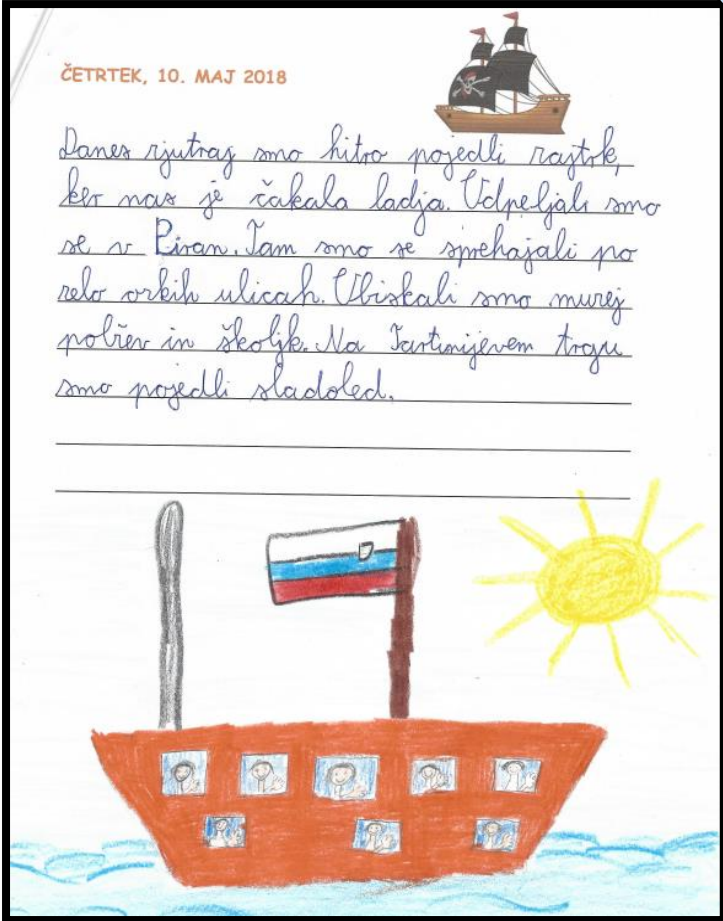 ČETRTEK, 10. MAJ 2018
Danes zjutraj smo hitro pojedli zajtrk,
ker nas je čakala ladja. Odpeljali smo
se v Piran. Tam smo se sprehajali po
zelo ozkih ulicah. Obiskali smo muzej
polžev in školjk. Na Tartinijevem trgu
smo pojedli sladoled.